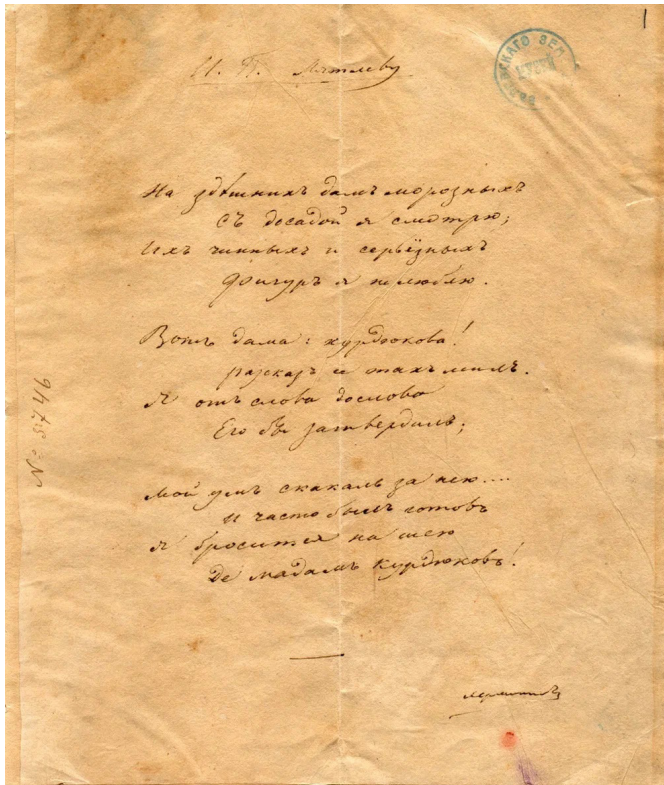 1
И. П. Мятлеву
На здѣшнихъ дамъ морозныхъ
Съ досадой я смотрю;
Ихъ чинныхъ и серьёзныхъ
Фигуръ я не люблю.
Вотъ дама: курдюкова!
разсказъ и такъ милъ.
Я отъ слова дослова
Его бы затвердилъ;
Мой умъ скакалъ за нею....
И часто былъ готовъ
Я бросится на шею
De мадамъ Курдюковъ!
Лермонтовъ
№ 9475
СКАГО ЗЕМ